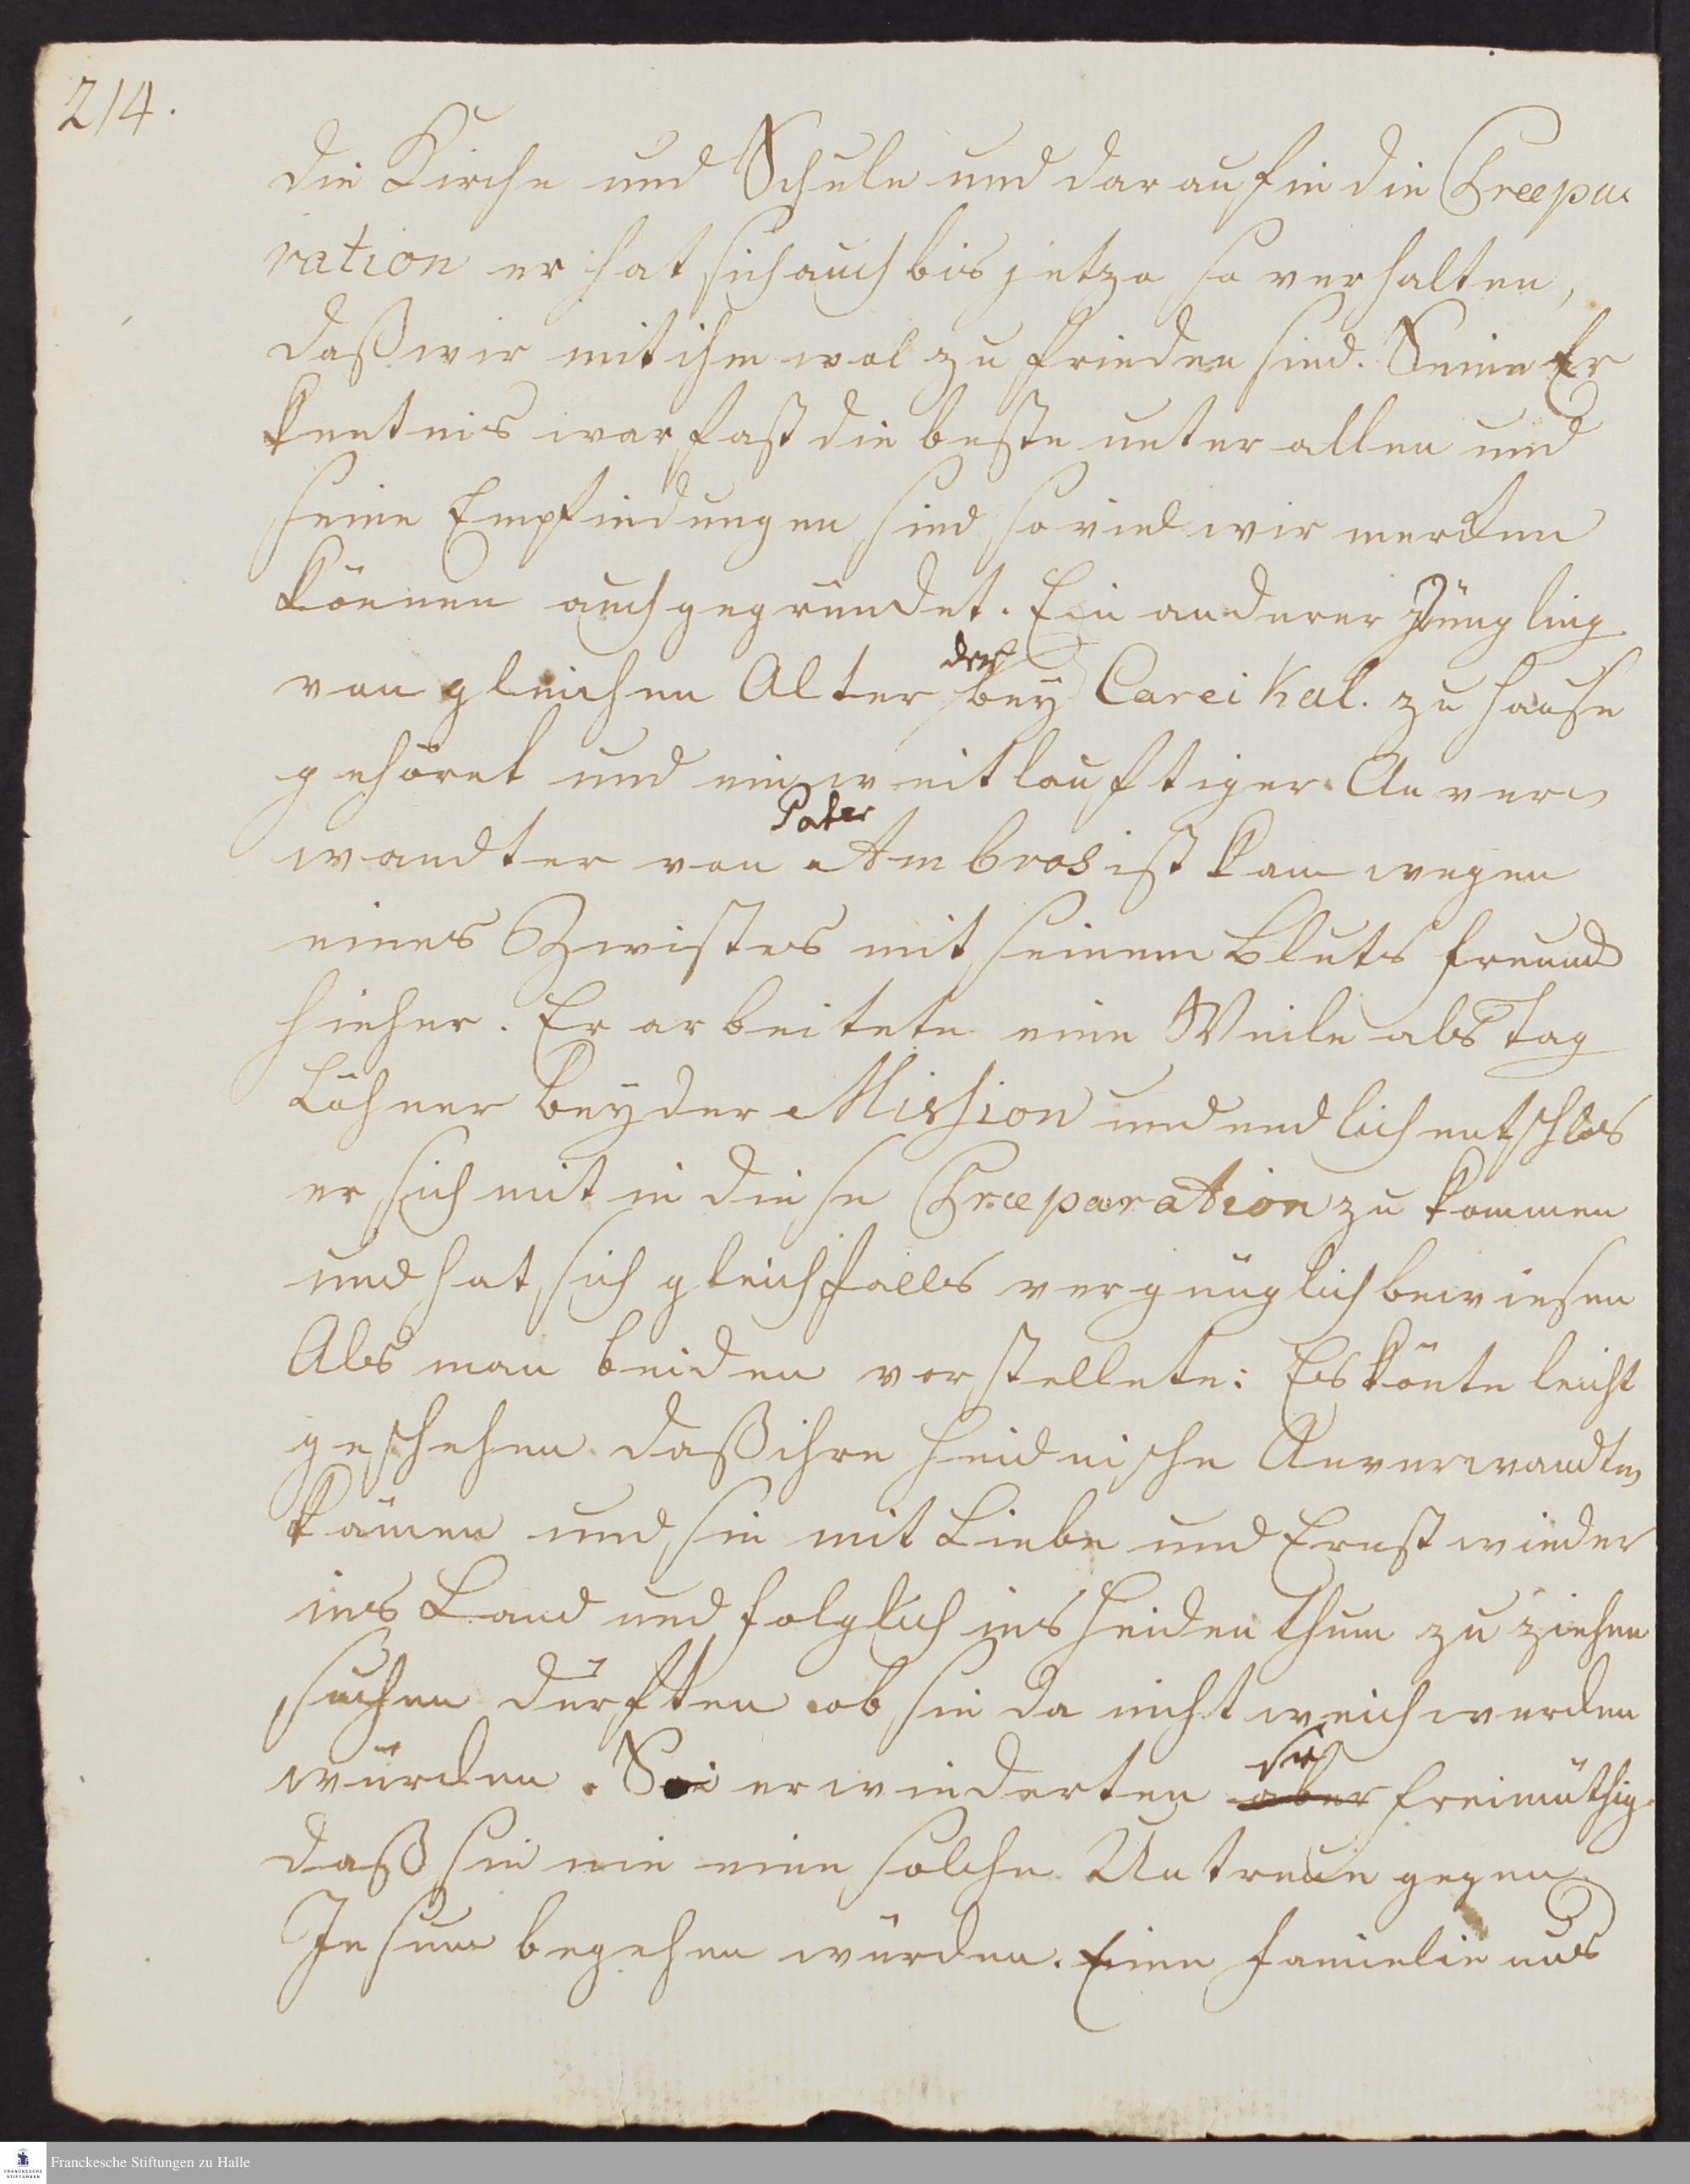 214.
die Kirche und Schule und darauf in die Praepa-
ration er hat sich auch bis jetzo so verhalten,
daß wir mit ihm wol zu frieden sind. Seine Er
kentnis war fast die beste unter allen und
seine Empfindungen sind so viel wir merken
können auch gegründet. Ein anderer Jüngling
der
von gleichen Alter bey Careikal. zu Hause
gehöret und ein weitläuftiger Anver-
Pater
wandter von Ambros ist kam wegen
eines Zwistes mit seinem Bluts freund
hieher. Er arbeitete eine Weile als Tag
Löhner bey der Mission und endlich entschlos
er sich mit in diese Praeparation zu kommen
und hat sich gleichfalls vergnüglich bewiesen
Als man beiden vorstellete: Es könte leicht
geschehen daß ihre heidnische Anverwandten
kämen und sie mit Liebe und Ernst wieder
ins Land und folglich ins Heidenthum zu ziehen
suchen dürften ob sie da nicht weich werden
würden. So erwiederten aber freimüthig
sie
daß sie nie eine solche Untreue gegen
Jesum begehen würden. Eine Familie aus
Franckesche Stiftungen zu Halle
FRANCKESCHE STIFTUNGEN